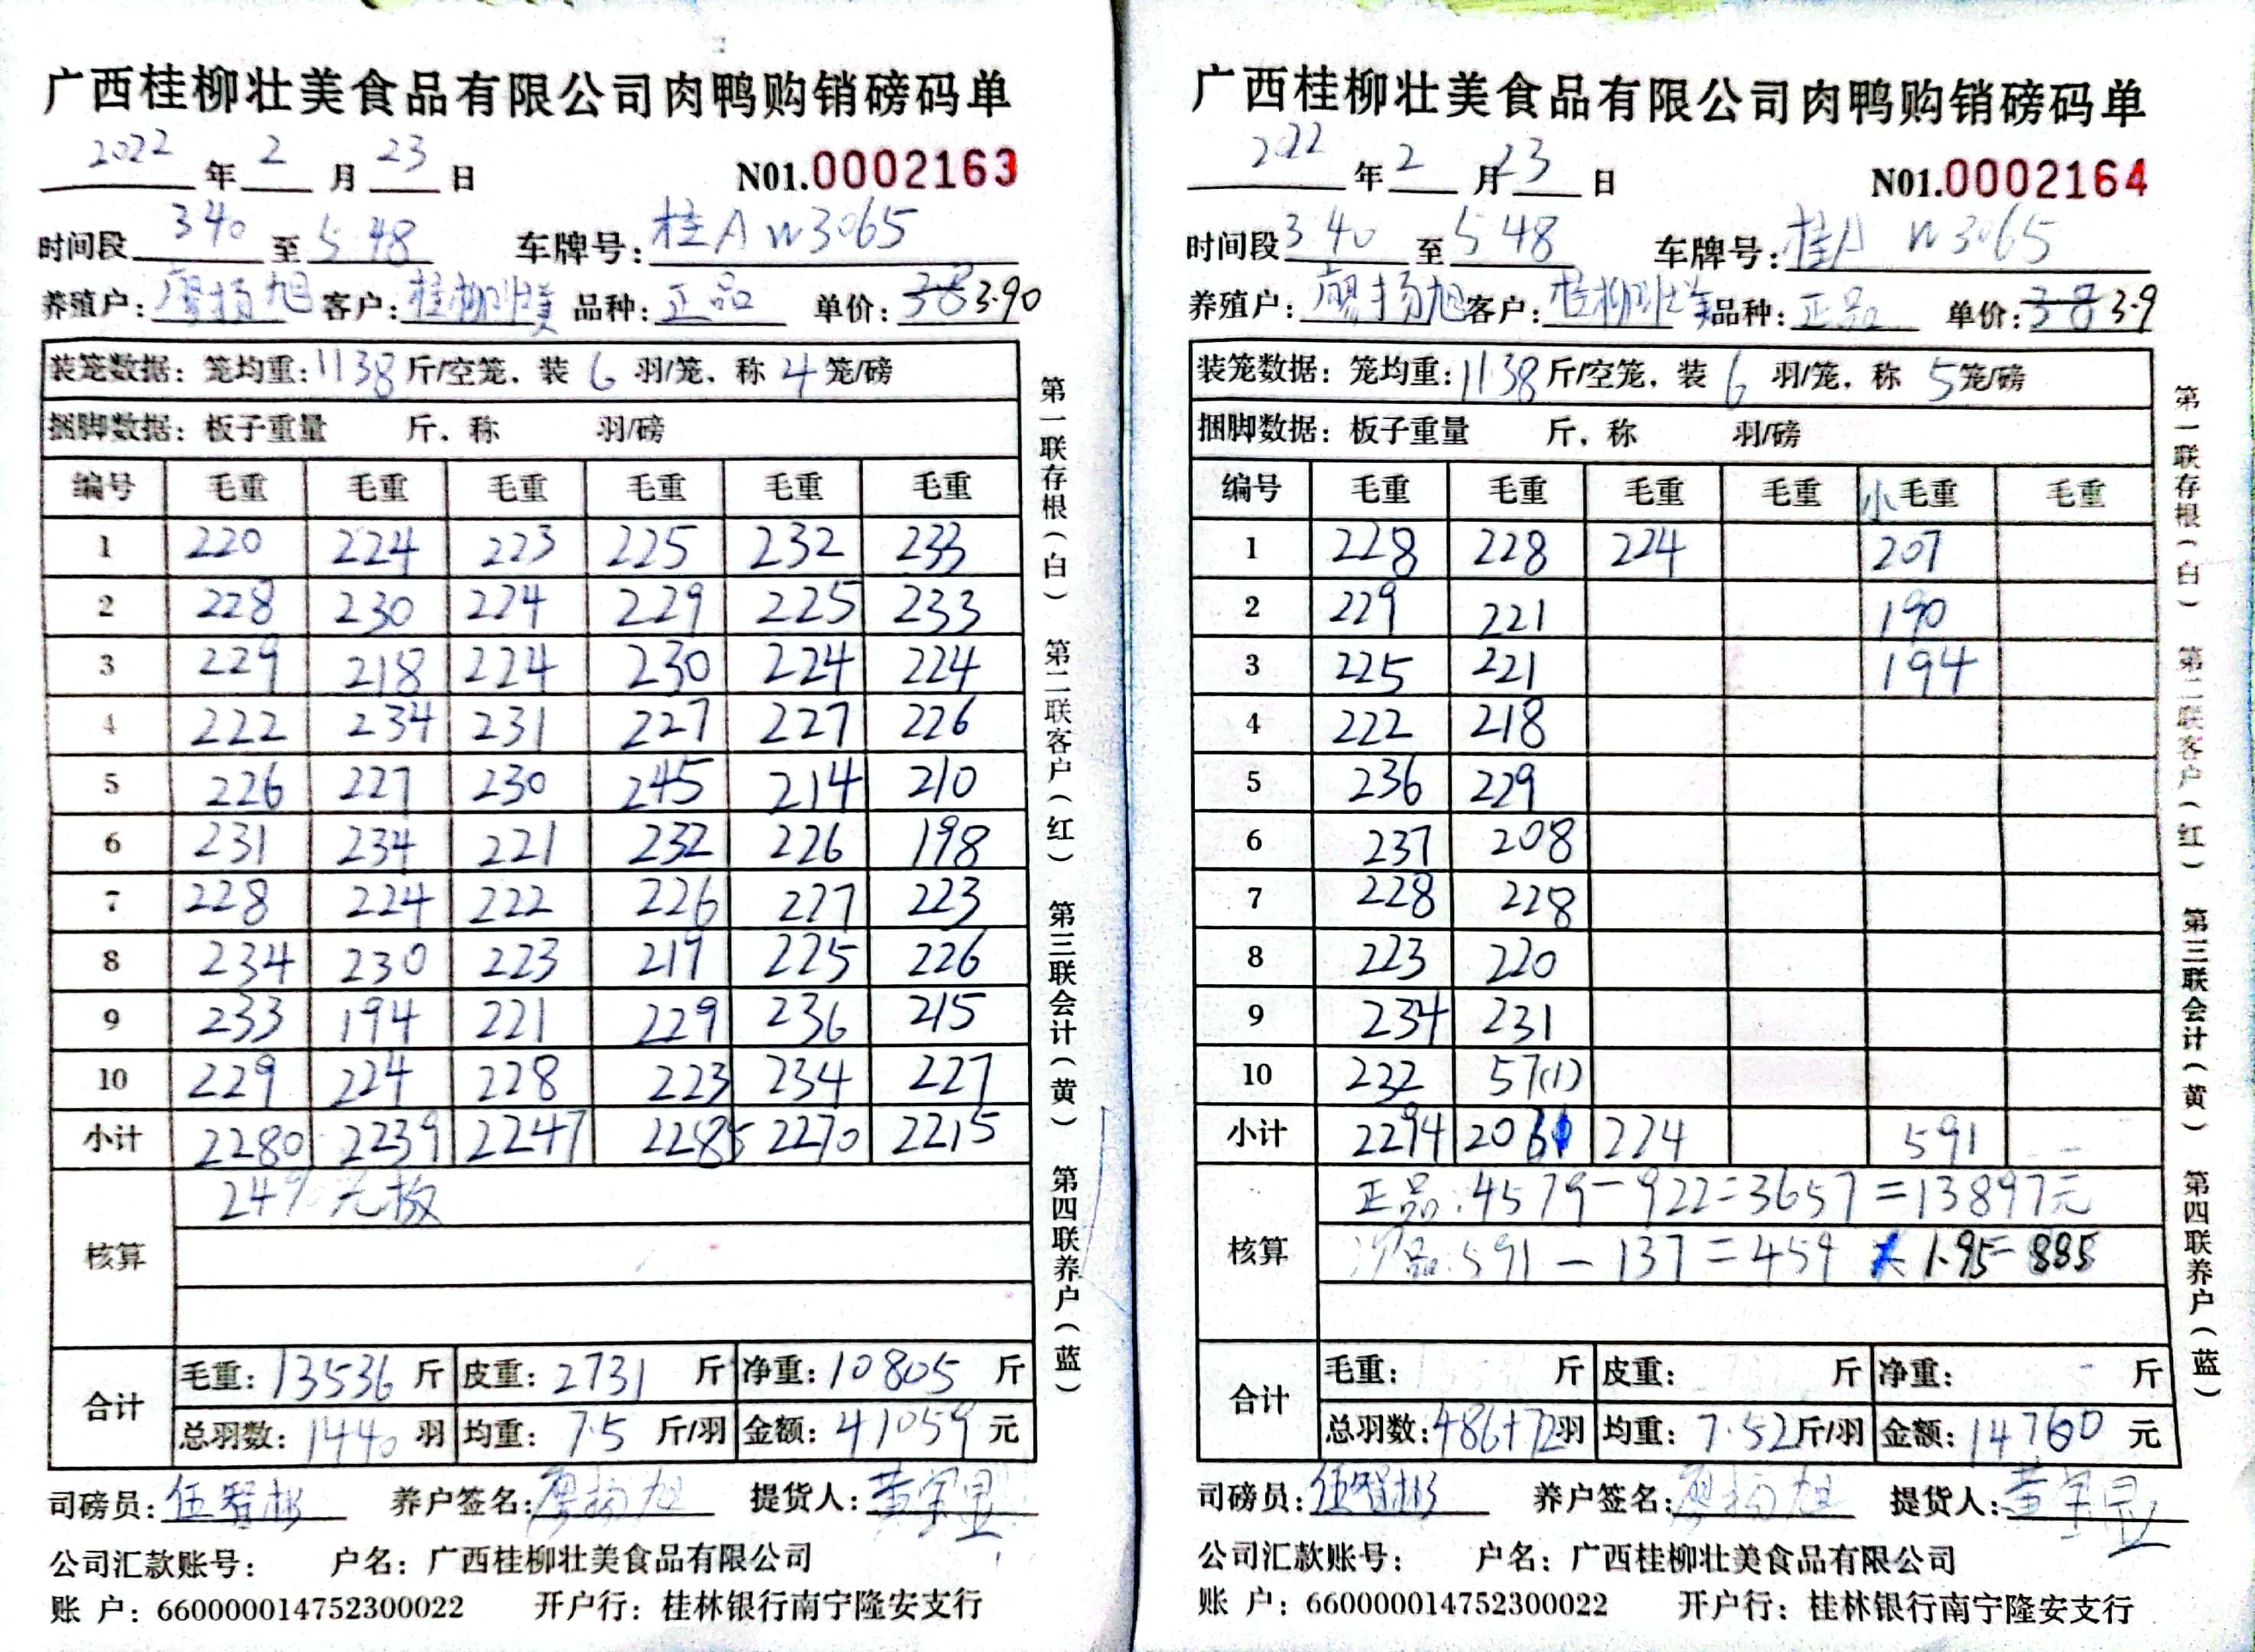 广西桂柳壮美食品有限公司肉鸭购销磅码单
2022 年 2 月 23 日 N01.0002163
时间段 3 40 至 5 48 车牌号: 桂A W3065
养殖户: 廖扬旭 客户: 桂柳壮美 品种: 正品 单价: 3.8 3.90
装笼数据: 笼均重: 11.38 斤/空笼, 装 6 羽/笼, 称 4 笼/磅
捆脚数据: 板子重量 斤, 称 羽/磅
编号 毛重 毛重 毛重 毛重 毛重 毛重
1 220 224 223 225 232 233
2 228 230 224 229 225 233
3 229 218 224 230 224 224
4 222 234 231 227 227 226
5 226 227 230 245 214 210
6 231 234 221 232 226 198
7 228 224 222 226 227 223
8 234 230 223 219 225 226
9 233 194 221 229 236 215
10 229 224 228 223 234 227
小计 2280 2239 2247 2285 2270 2215
核算
合计 毛重: 13536 斤 皮重: 2731 斤 净重: 10805 斤
总羽数: 1440 羽 均重: 7.5 斤/羽 金额: 41059 元
司磅员: 养户签名: 廖扬旭 提货人:
公司汇款账号: 户名: 广西桂柳壮美食品有限公司
账 户: 660000014752300022 开户行: 桂林银行南宁隆安支行
第一联存根(白) 第二联客户(红) 第三联会计(黄) 第四联养户(蓝)
广西桂柳壮美食品有限公司肉鸭购销磅码单
2022 年 2 月 23 日 N01.0002164
时间段 3 40 至 5 48 车牌号: 桂A W3065
养殖户: 廖扬旭 客户: 桂柳壮美 品种: 正品 单价: 3.8 3.9
装笼数据: 笼均重: 11.38 斤/空笼, 装 6 羽/笼, 称 5 笼/磅
捆脚数据: 板子重量 斤, 称 羽/磅
编号 毛重 毛重 毛重 毛重 小 毛重 毛重
1 228 228 224 207
2 229 221 190
3 225 221 194
4 222 218
5 236 229
6 237 208
7 228 228
8 223 220
9 234 231
10 232 57(1)
小计 2294 2061 224 591
核算 正品: 4579-922=3657=13897元
品: 591-137=454 × 1.95=885
合计 毛重: 斤 皮重: 斤 净重: 斤
总羽数: 486+72 羽 均重: 7.52 斤/羽 金额: 14760 元
司磅员: 养户签名: 廖扬旭 提货人:
公司汇款账号: 户名: 广西桂柳壮美食品有限公司
账 户: 660000014752300022 开户行: 桂林银行南宁隆安支行
第一联存根(白) 第二联客户(红) 第三联会计(黄) 第四联养户(蓝)